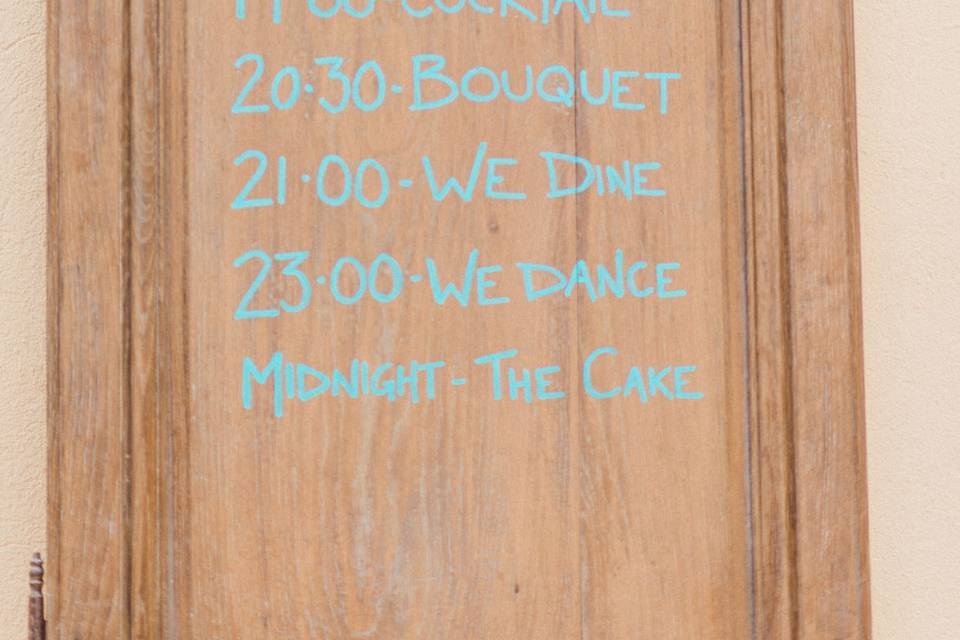 COCKTAIL
20·30·BOUQUET
21·00-WE DINE
23·00-WE DANCE
MIDNIGHT-THE CAKE